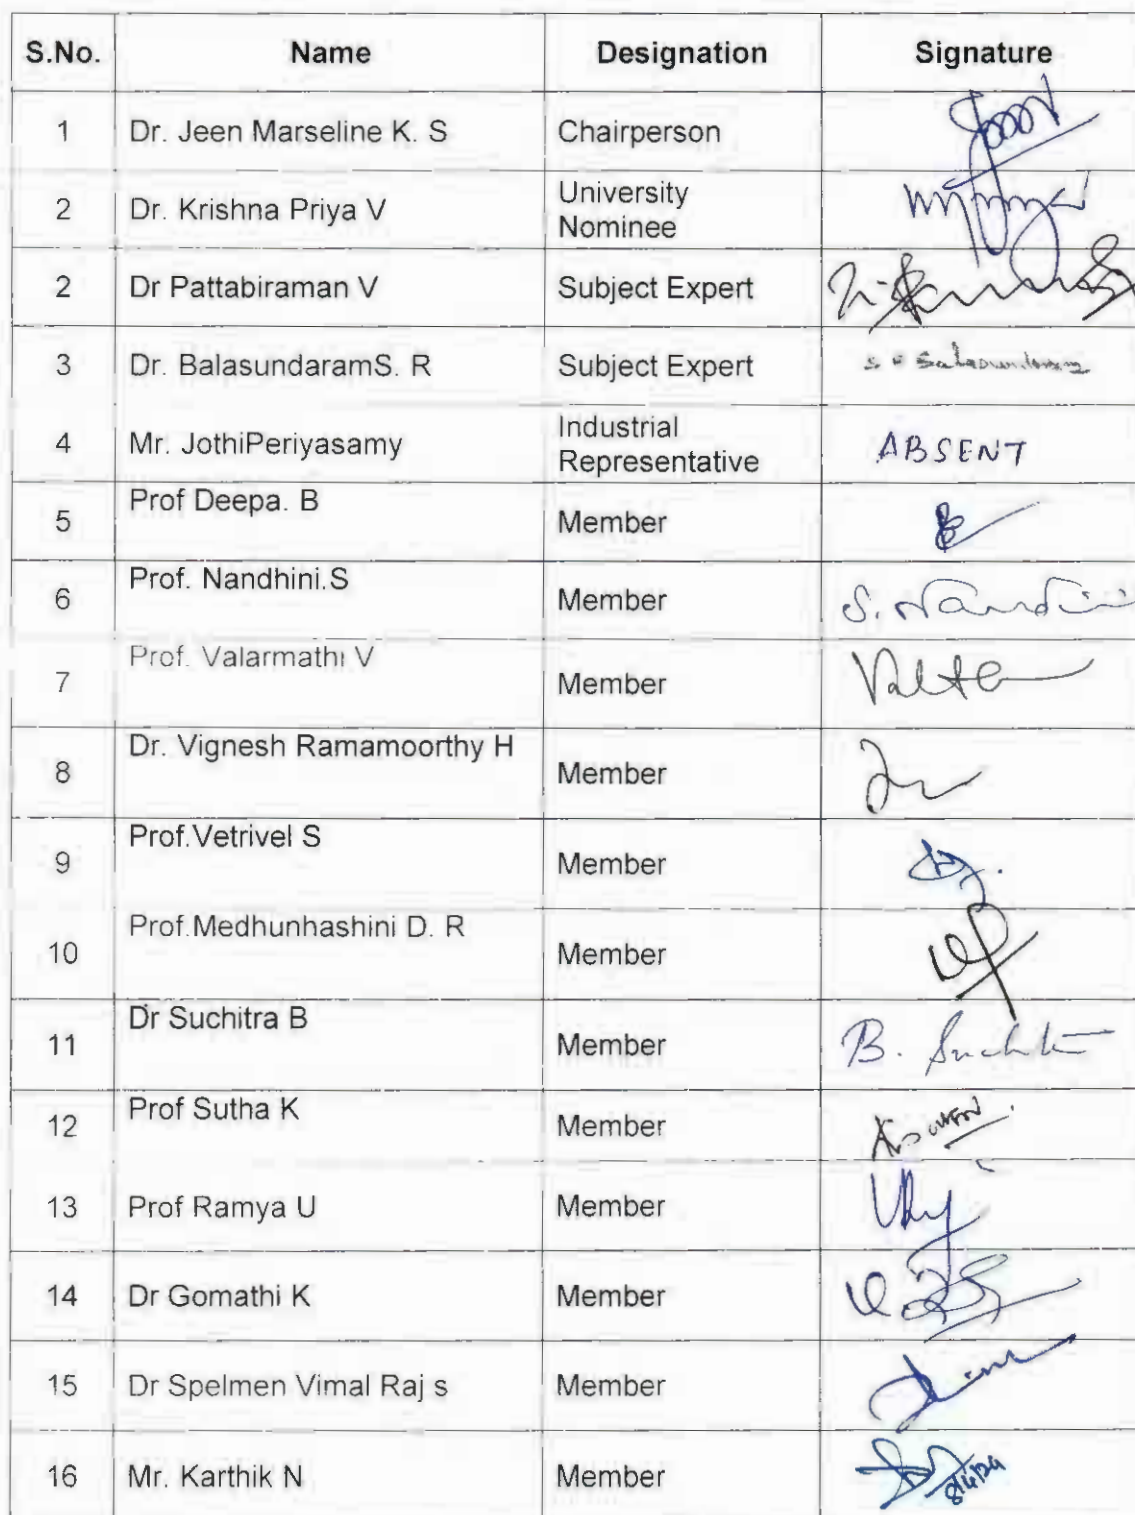 S.No. Name Designation Signature
1 Dr. Jeen Marseline K. S Chairperson
2 Dr. Krishna Priya V University
Nominee
2 Dr Pattabiraman V Subject Expert
3 Dr. BalasundaramS. R Subject Expert
4 Mr. JothiPeriyasamy Industrial
Representative ABSENT
5 Prof Deepa. B Member
6 Prof. Nandhini.S Member S. Nandini
7 Prof. Valarmathi V Member
8 Dr. Vignesh Ramamoorthy H Member
9 Prof.Vetrivel S Member
10 Prof.Medhunhashini D. R Member
11 Dr Suchitra B Member B.
12 Prof Sutha K Member
13 Prof Ramya U Member
14 Dr Gomathi K Member
15 Dr Spelmen Vimal Raj s Member
16 Mr. Karthik N Member 8/4/24